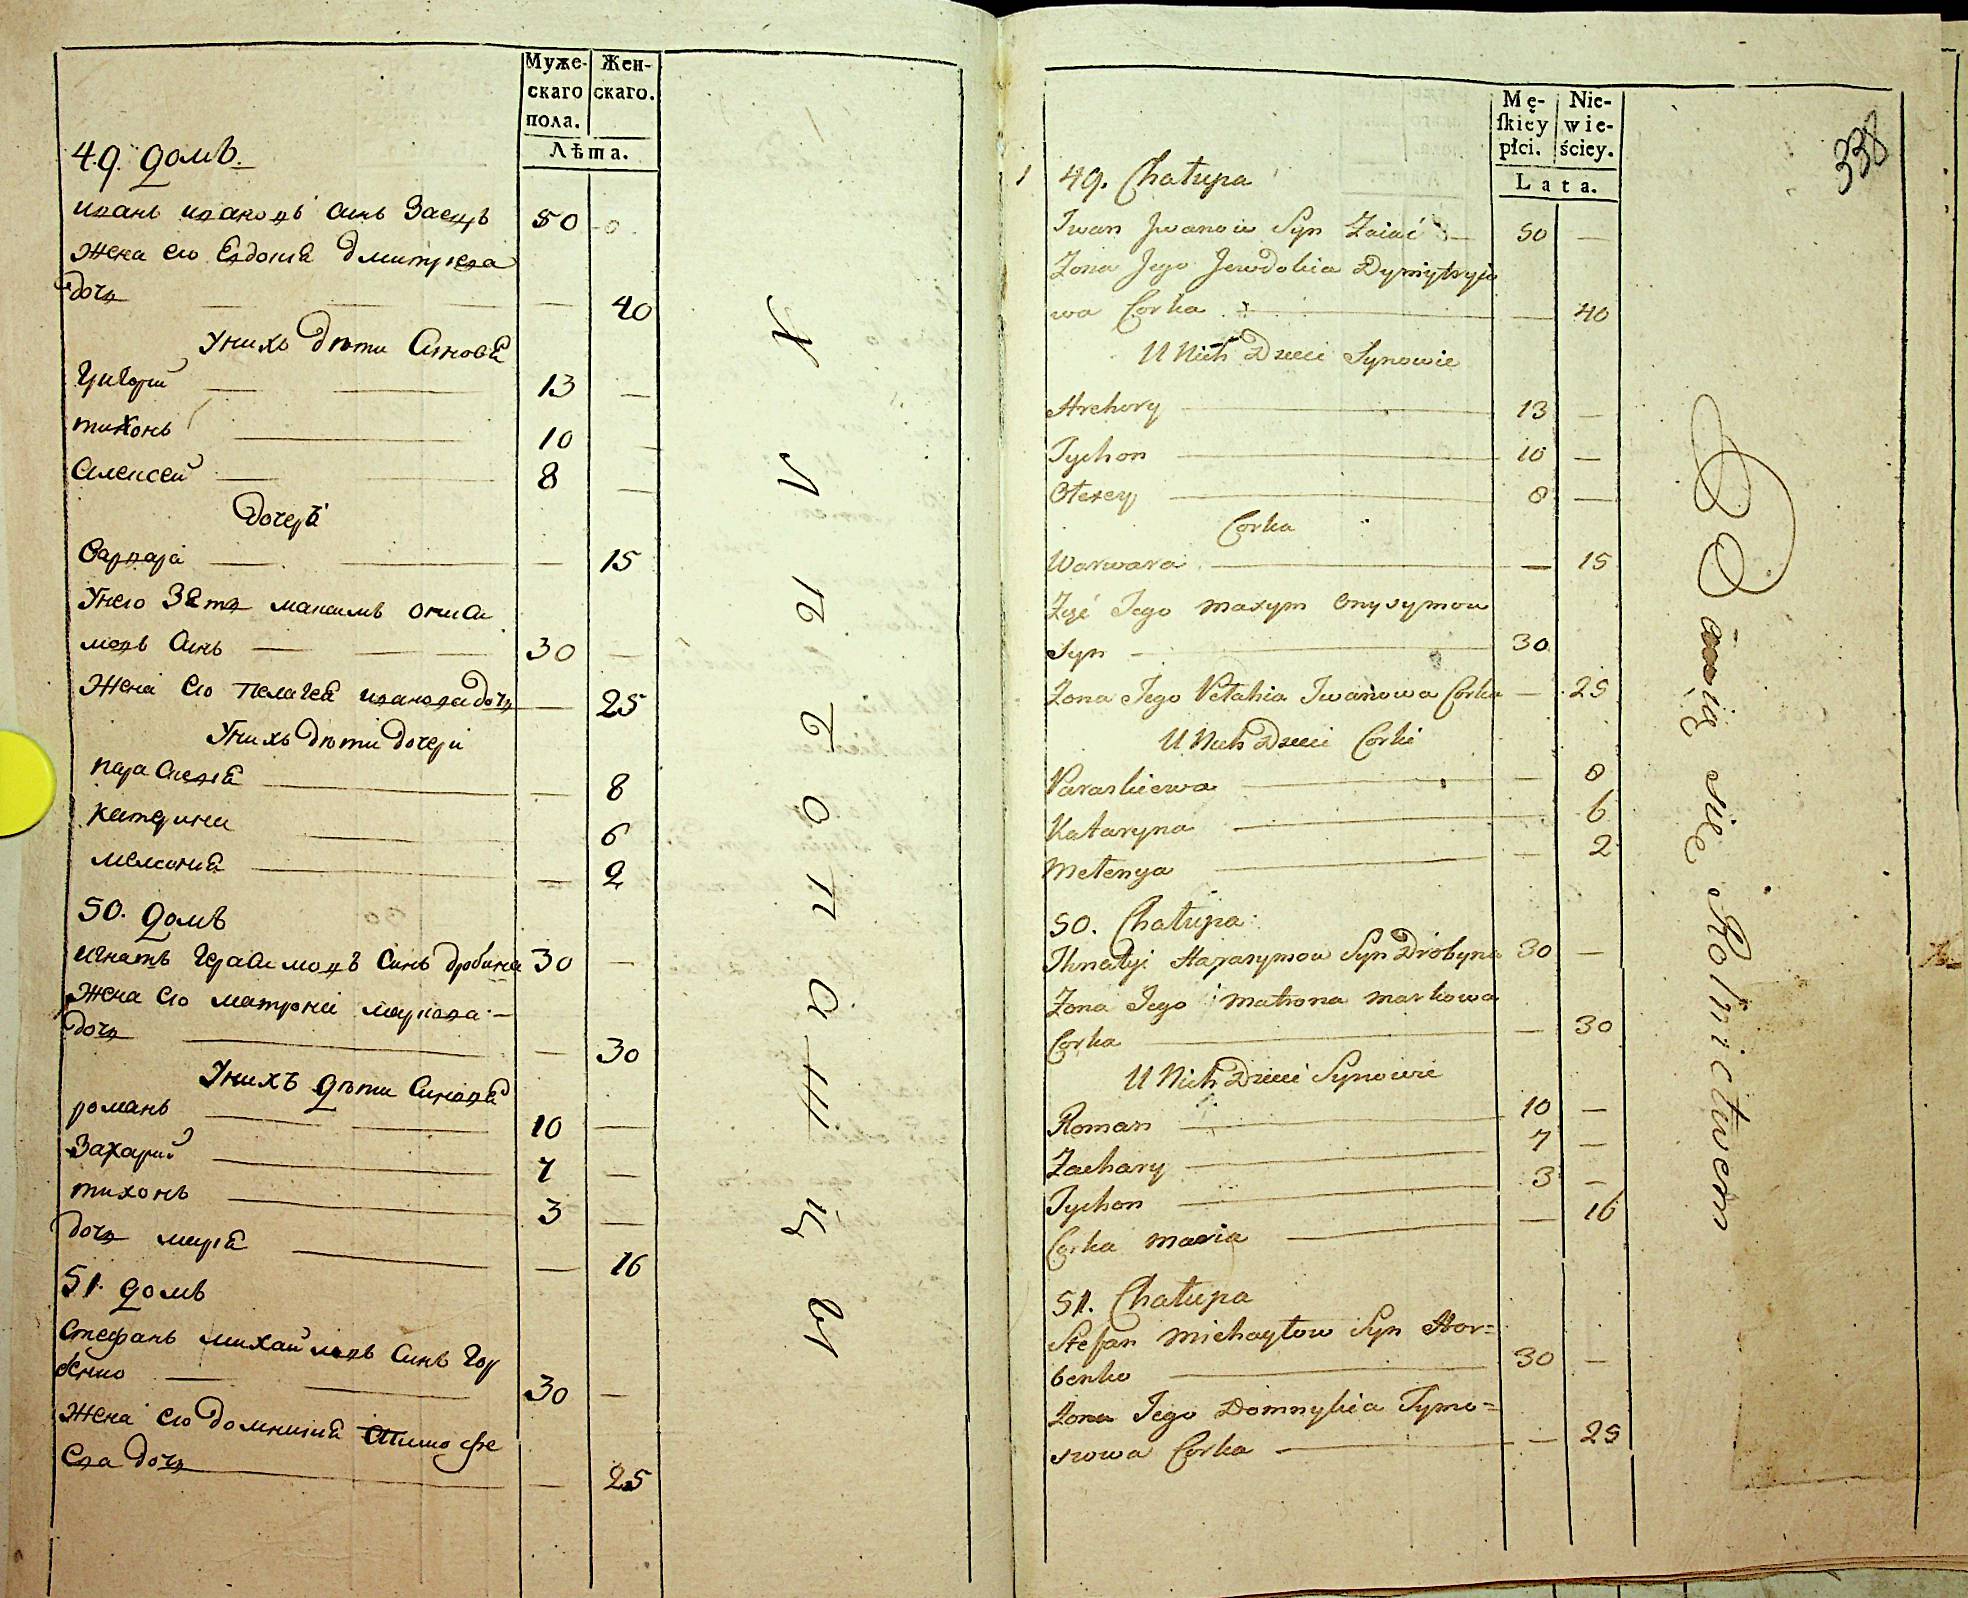 Муже-
скаго
пола.
Жен-
скаго.
Лѣта.
49. домъ.
иванъ ивановъ синъ Заецъ 50
Жена его Евдокиа Дмитриева
дочъ 40
Унихъ дѣти Синова
Григорий 13
тихонъ 10
Алексей 8
Дочерь
Варвара 15
Унего Зать максимъ ониси
мовъ синъ 30
Жена его пелагеа иванова дочъ 25
Унихъ дѣти дочери
параскевиа 8
катерина 6
меланиа 2
50. домъ
игнатъ Герасимовъ синъ дробина 30
Жена его матрона маркова
дочъ 30
Унихъ дѣти Синова
романъ 10
Захарий 7
тихонъ 3
дочъ мариа 16
51. домъ
Стефанъ михайловъ синъ Гор
бенко 30
Жена его домникиа Тимофе
ева дочъ 25
Хлѣбопашцы
Mę-
skiey
płci.
Nie-
wie-
ściey.
Lata.
338
49. Chałupa
Iwan Jwanow Syn Zaiać 50
Zona Jego Jewdokia Dymytryjo
wa Corka 40
U Nich Dzieci Synowie
Hrehory 13
Tychon 10
Ołexey 8
Corka
Warwara 15
Zęć Jego Maxym Onysymow
Syn 30
Zona Jego Pełahia Iwanowa Corka 25
U Nich Dzieci Corki
Paraskiewa 8
Kataryna 6
Mełenya 2
50. Chałupa
Ihnatyi Harasymow Syn Drobyna 30
Zona Jego Matrona Markowa
Corka 30
U Nich Dzieci Synowie
Roman 10
Zachary 7
Tychon 3
Corka Maria 16
51. Chałupa
Stefan Michayłow Syn Hor=
benko 30
Zona Jego Domnykia Tymo=
szowa Corka 25
Bawią się Rolnictwem